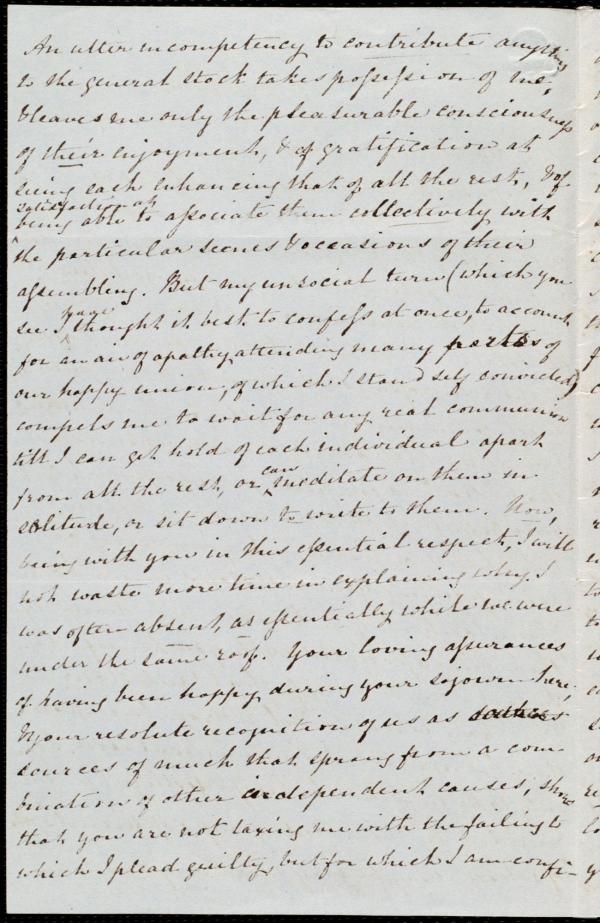 An utter incompetency to contribute anything
to the general stock takes possession of me,
& leaves me only the pleasurable consciousness
of their enjoyment, & of gratification at
seeing each enhancing that of all the rest, & of
satisfaction at
being able to associate them collectively with
the particular scenes & occasions of their
assembling. But my unsocial turn (which you
see I have thought it best to confess at once, to account
for an air of apathy attending many parts of
our happy union, of which I stand self convicted)
compels me to wait for any real communion
till I can get hold of each individual apart
from all the rest, or can meditate on them in
solitude, or sit down to write to them. Now,
being with you in this essential respect, I will
not waste more time in explaining why I
was often absent, as essentially while we were
under the same roof. Your loving assurances
of having been happy during your sojourn here,
& your resolute recognition of us as
sources of much that sprang from a com-
bination of other independent causes, show
that you are not taxing me with the failing to
which I plead guilty, but for which I am confi-